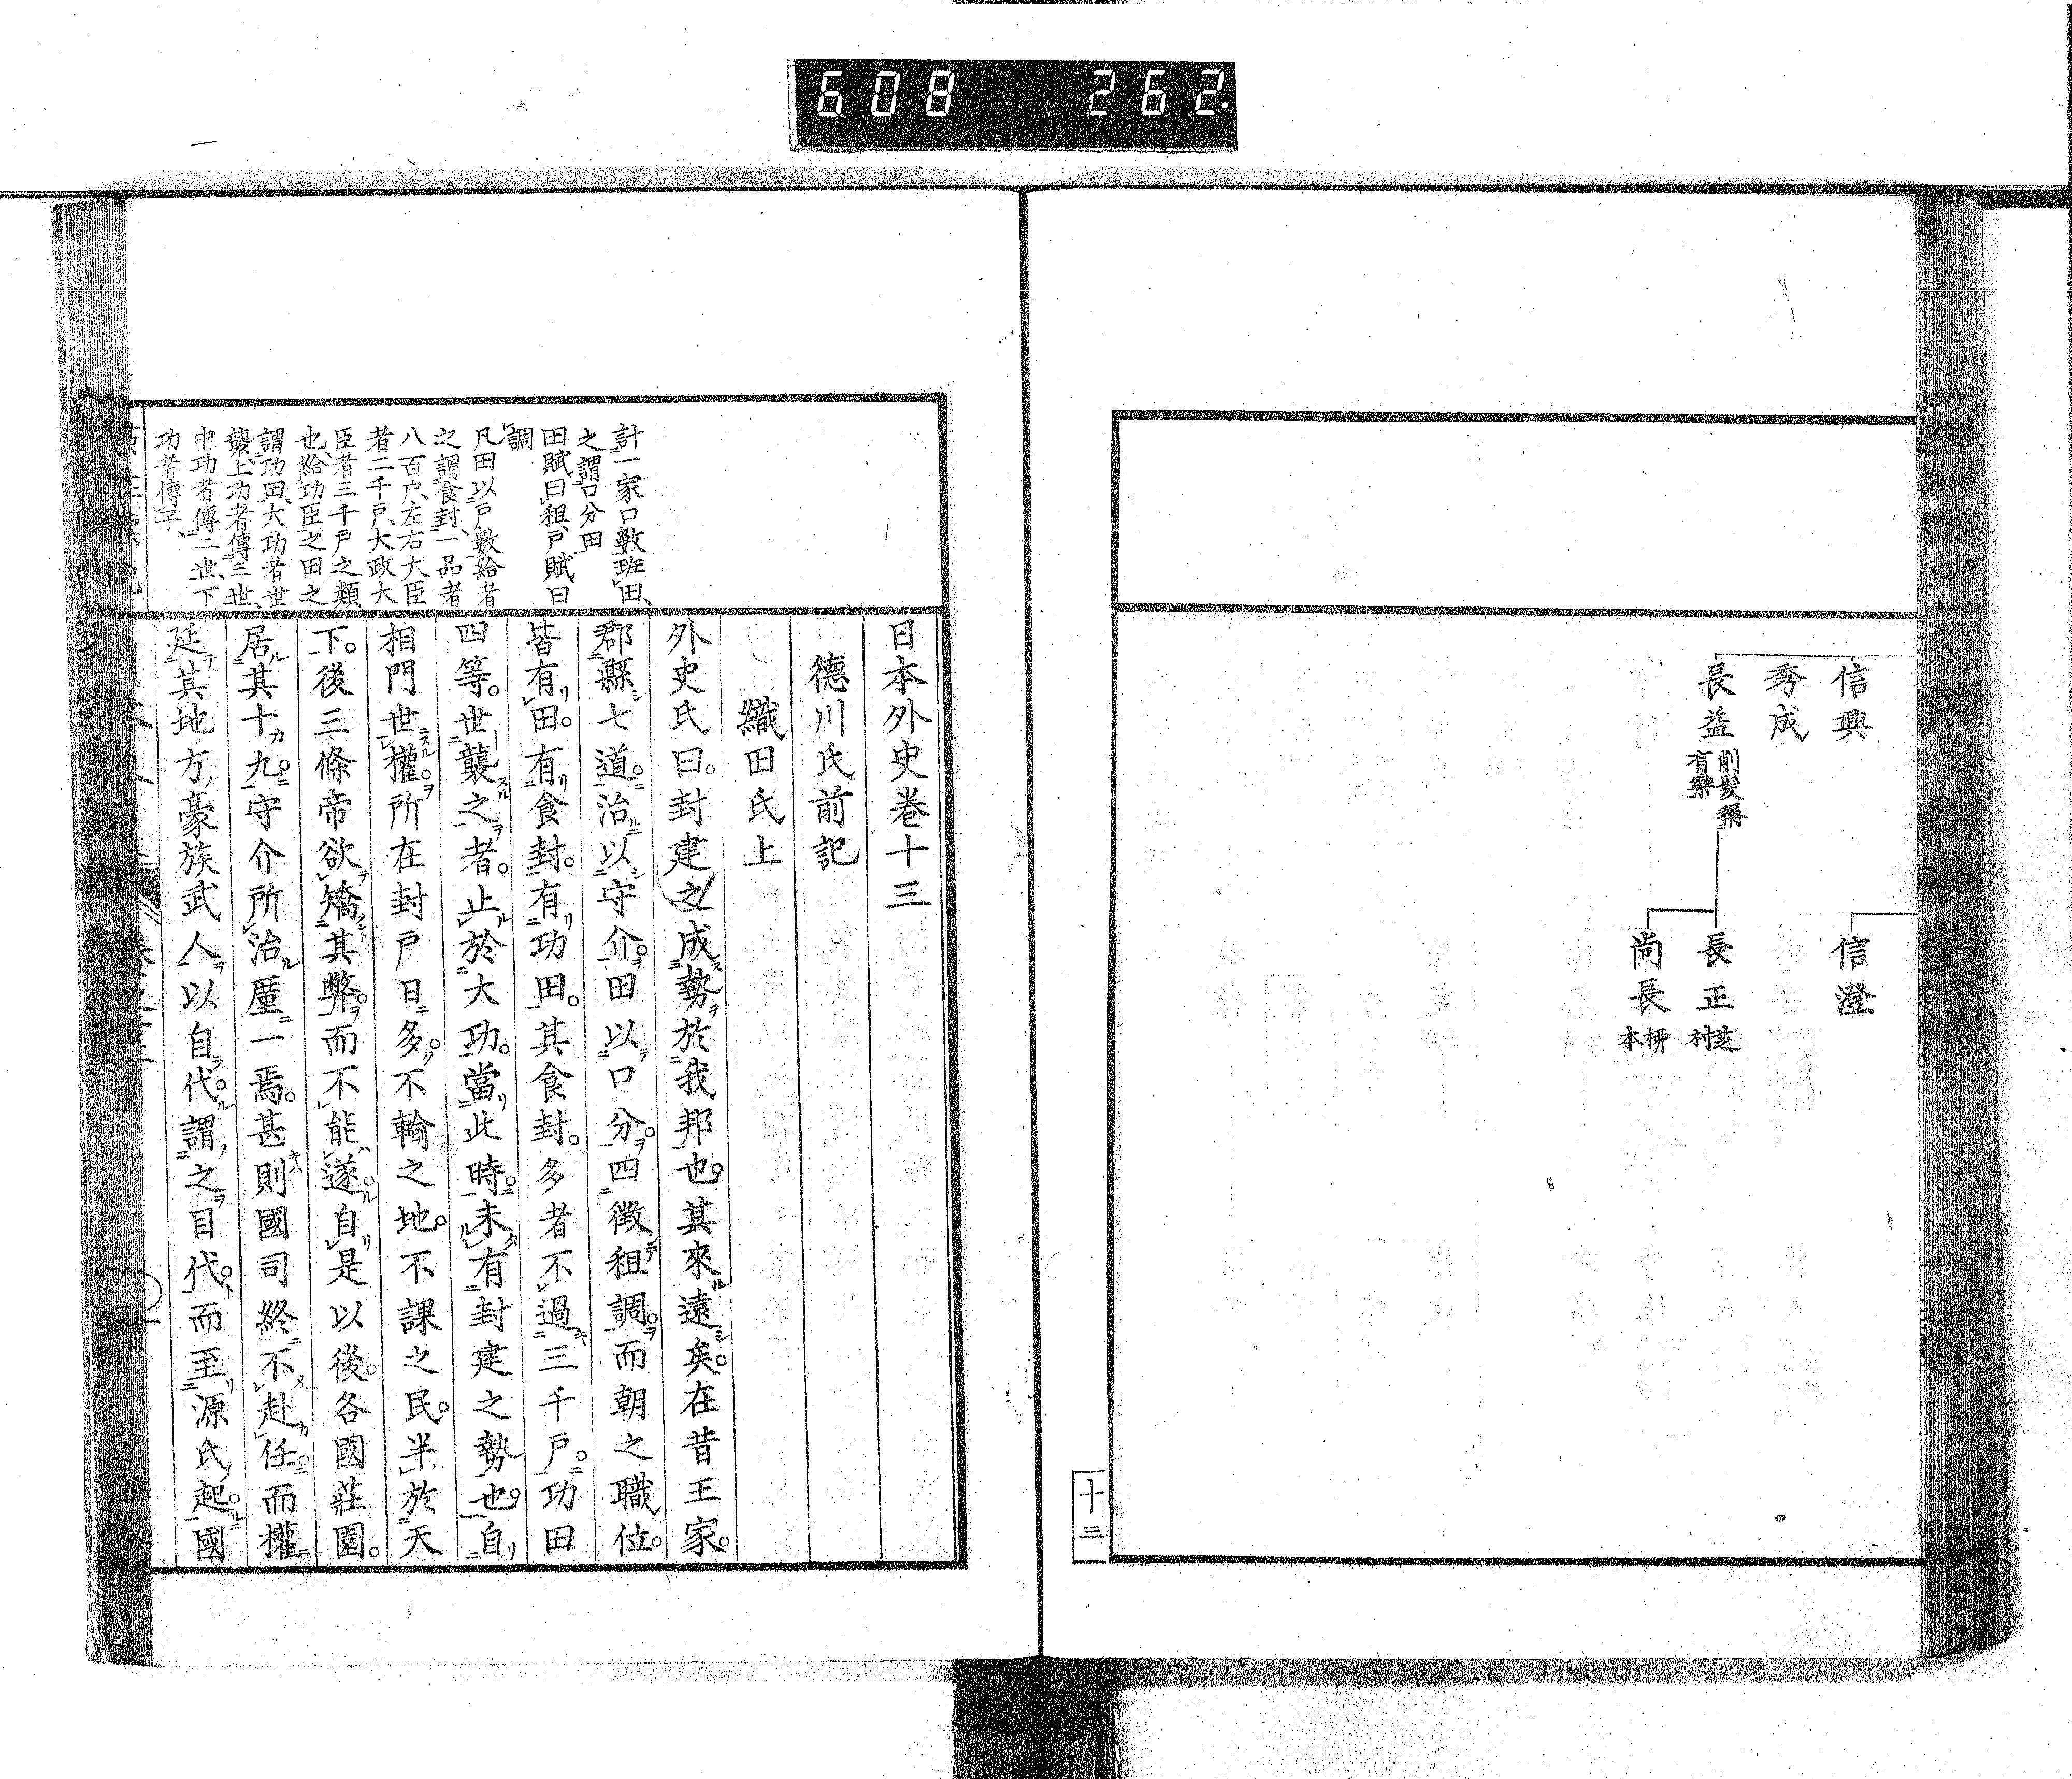 608 262.
信興
秀成
長益 削髮稱有樂
信澄
長正 芝村
尚長 栁本
十三
計一家口數班田、
之謂口分田
田賦曰租、戸賦曰
調
凡田以戸數給者
之謂食封、一品者
八百戸、左右大臣
者二千戸、大政大
臣者三千戸之類
也、給功臣之田之
謂功田、大功者世
襲、上功者傳三世、
中功者傳二世、下
功者傳子、
日本外史卷十三
德川氏前記
織田氏上
外史氏曰。封建之成勢於我邦也。其來遠矣。在昔王家。
郡縣七道。治以守介。田以口分。四徵租調。而朝之職位。
皆有田。有食封。有功田。其食封。多者不過三千戸。功田
四等。世襲之者。止於大功。當此時。未有封建之勢也。自
相門世權。所在封戸日多。不輸之地。不課之民。半於天
下。後三條帝欲矯其弊。而不能遂。自是以後。各國莊園。
居其十九。守介所治。厪一焉。甚則國司終不赴任。而權
延其地方豪族武人以自代。謂之目代。而至源氏起。國